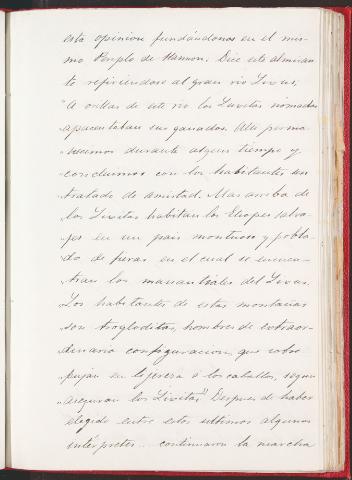 esta opinion fundándonos en el mis-
mo Periplo de Hannon. Dice este almiran-
te refiriendose al gran rio Lixus,
"A orillas de este rio los Lixitas nómadas
"apacentaban sus ganados. Alli perma-
"necimos durante algun tiempo y
"concluimos con los habitantes un
"tratado de amistad. Mas arriba de
"los Lixitas habitan los Etiopes salva-
"jes en un pais montuoso y pobla-
"do de fieras en el cual se encuen-
"tran los manantiales del Lixus.
"Los habitantes de estas montañas
"son trogloditas, hombres de extraor-
"dinaria configuracion, que sobre
"pujan en lijereza á los caballos, segun
"aseguran los Lixitas" Despues de haber
elegido entre estos ultimos algunos
intérpretes continuaron la marcha